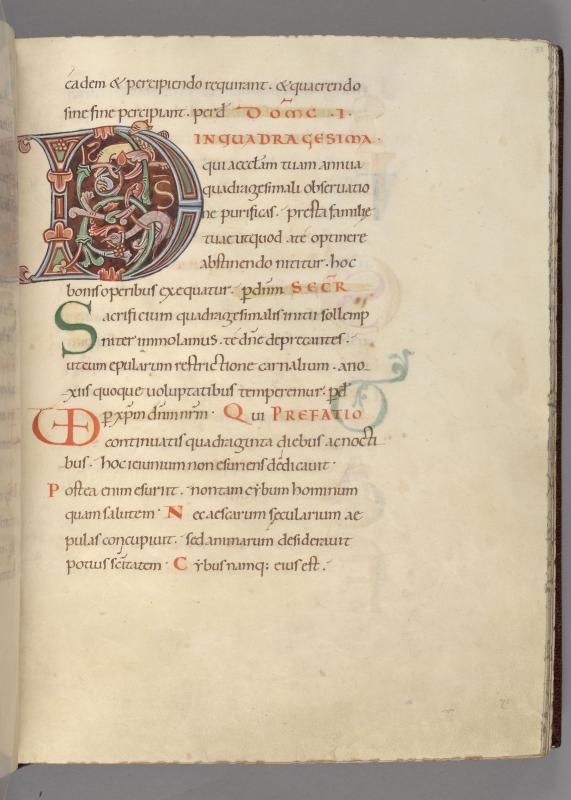 eadem & percipiendo requirant. & quaerendo
sine fine percipiant. perd̄ DOM̄C · I ·
IN QUADRAGESIMA ·
DS qui aecclām tuam annua
quadragesimali obseruatio
ne purificas. presta familie
tuae ut quod a te optinere
abstinendo nititur. hoc
bonis operibus exequatur. p dn̄m SECR̄
Sacrificium quadragesimalis initii sollemp
niter immolamus. te dn̄e deprecantes.
ut cum epularum restrictione carnalium. a no
xiis quoque uoluptatibus temperemur. pd̄
p xp̄m dn̄m nr̄m · Qui PREFATIO
continuatis quadraginta diebus ac nocti
bus. hoc ieiunium non esuriens dedicauit ·
Postea enim esuriit. non tam cybum hominum
quam salutem · Nec aescarum sęcularium ae
pulas concupiuit. sed animarum desiderauit
potius scītatem · Cybus namq: eius est.